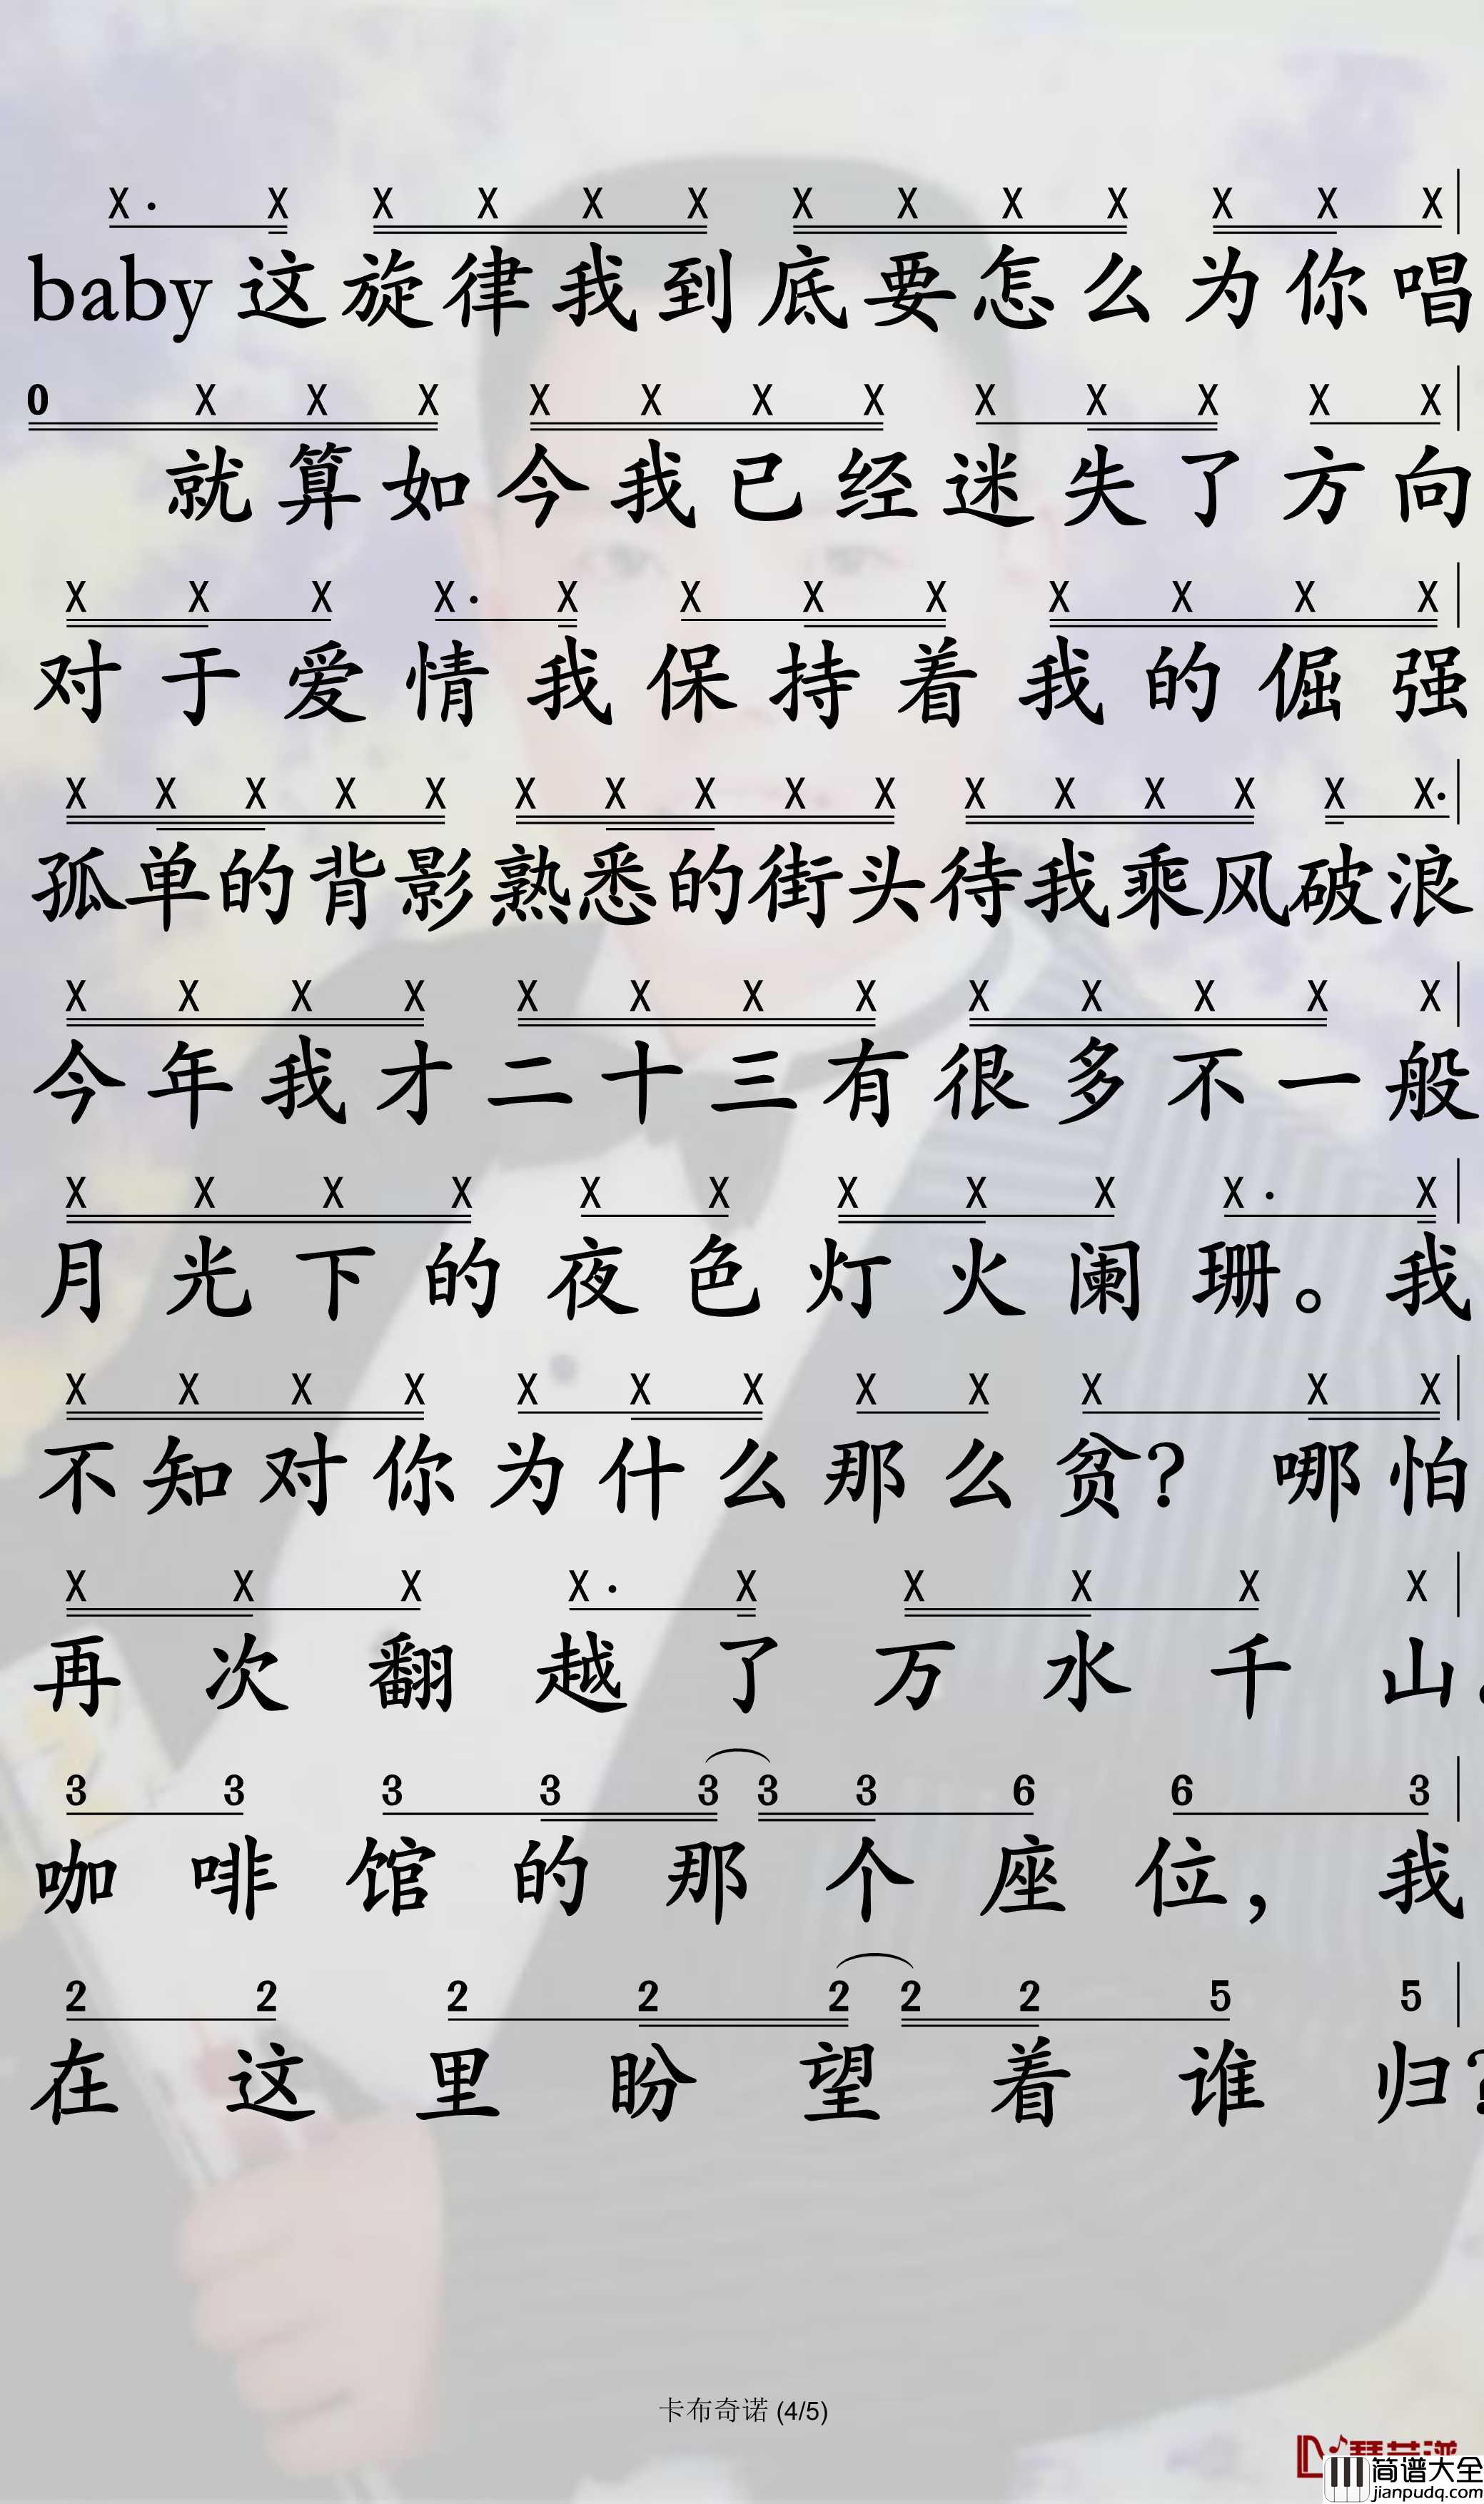 X· X X X X X X X X X X X X
baby 这旋律我到底要怎么为你唱
0 X X X X X X X X X X X X
就算如今我已经迷失了方向
X X X X· X X X X X X X X
对于爱情我保持着我的倔强
X X X X X X X X X X X X X X X X·
孤单的背影熟悉的街头待我乘风破浪
X X X X X X X X X X X X X
今年我才二十三有很多不一般
X X X X X X X X X X· X
月光下的夜色灯火阑珊。我
X X X X X X X X X X X X
不知对你为什么那么贫？ 哪怕
X X X X· X X X X X
再次翻越了万水千山
3 3 3 3 3 3 3 6 6 3
咖啡馆的那个座位，我
2 2 2 2 2 2 2 5 5
在这里盼望着谁归？
卡布奇诺 (4/5)
简谱大全
jianpudq.com